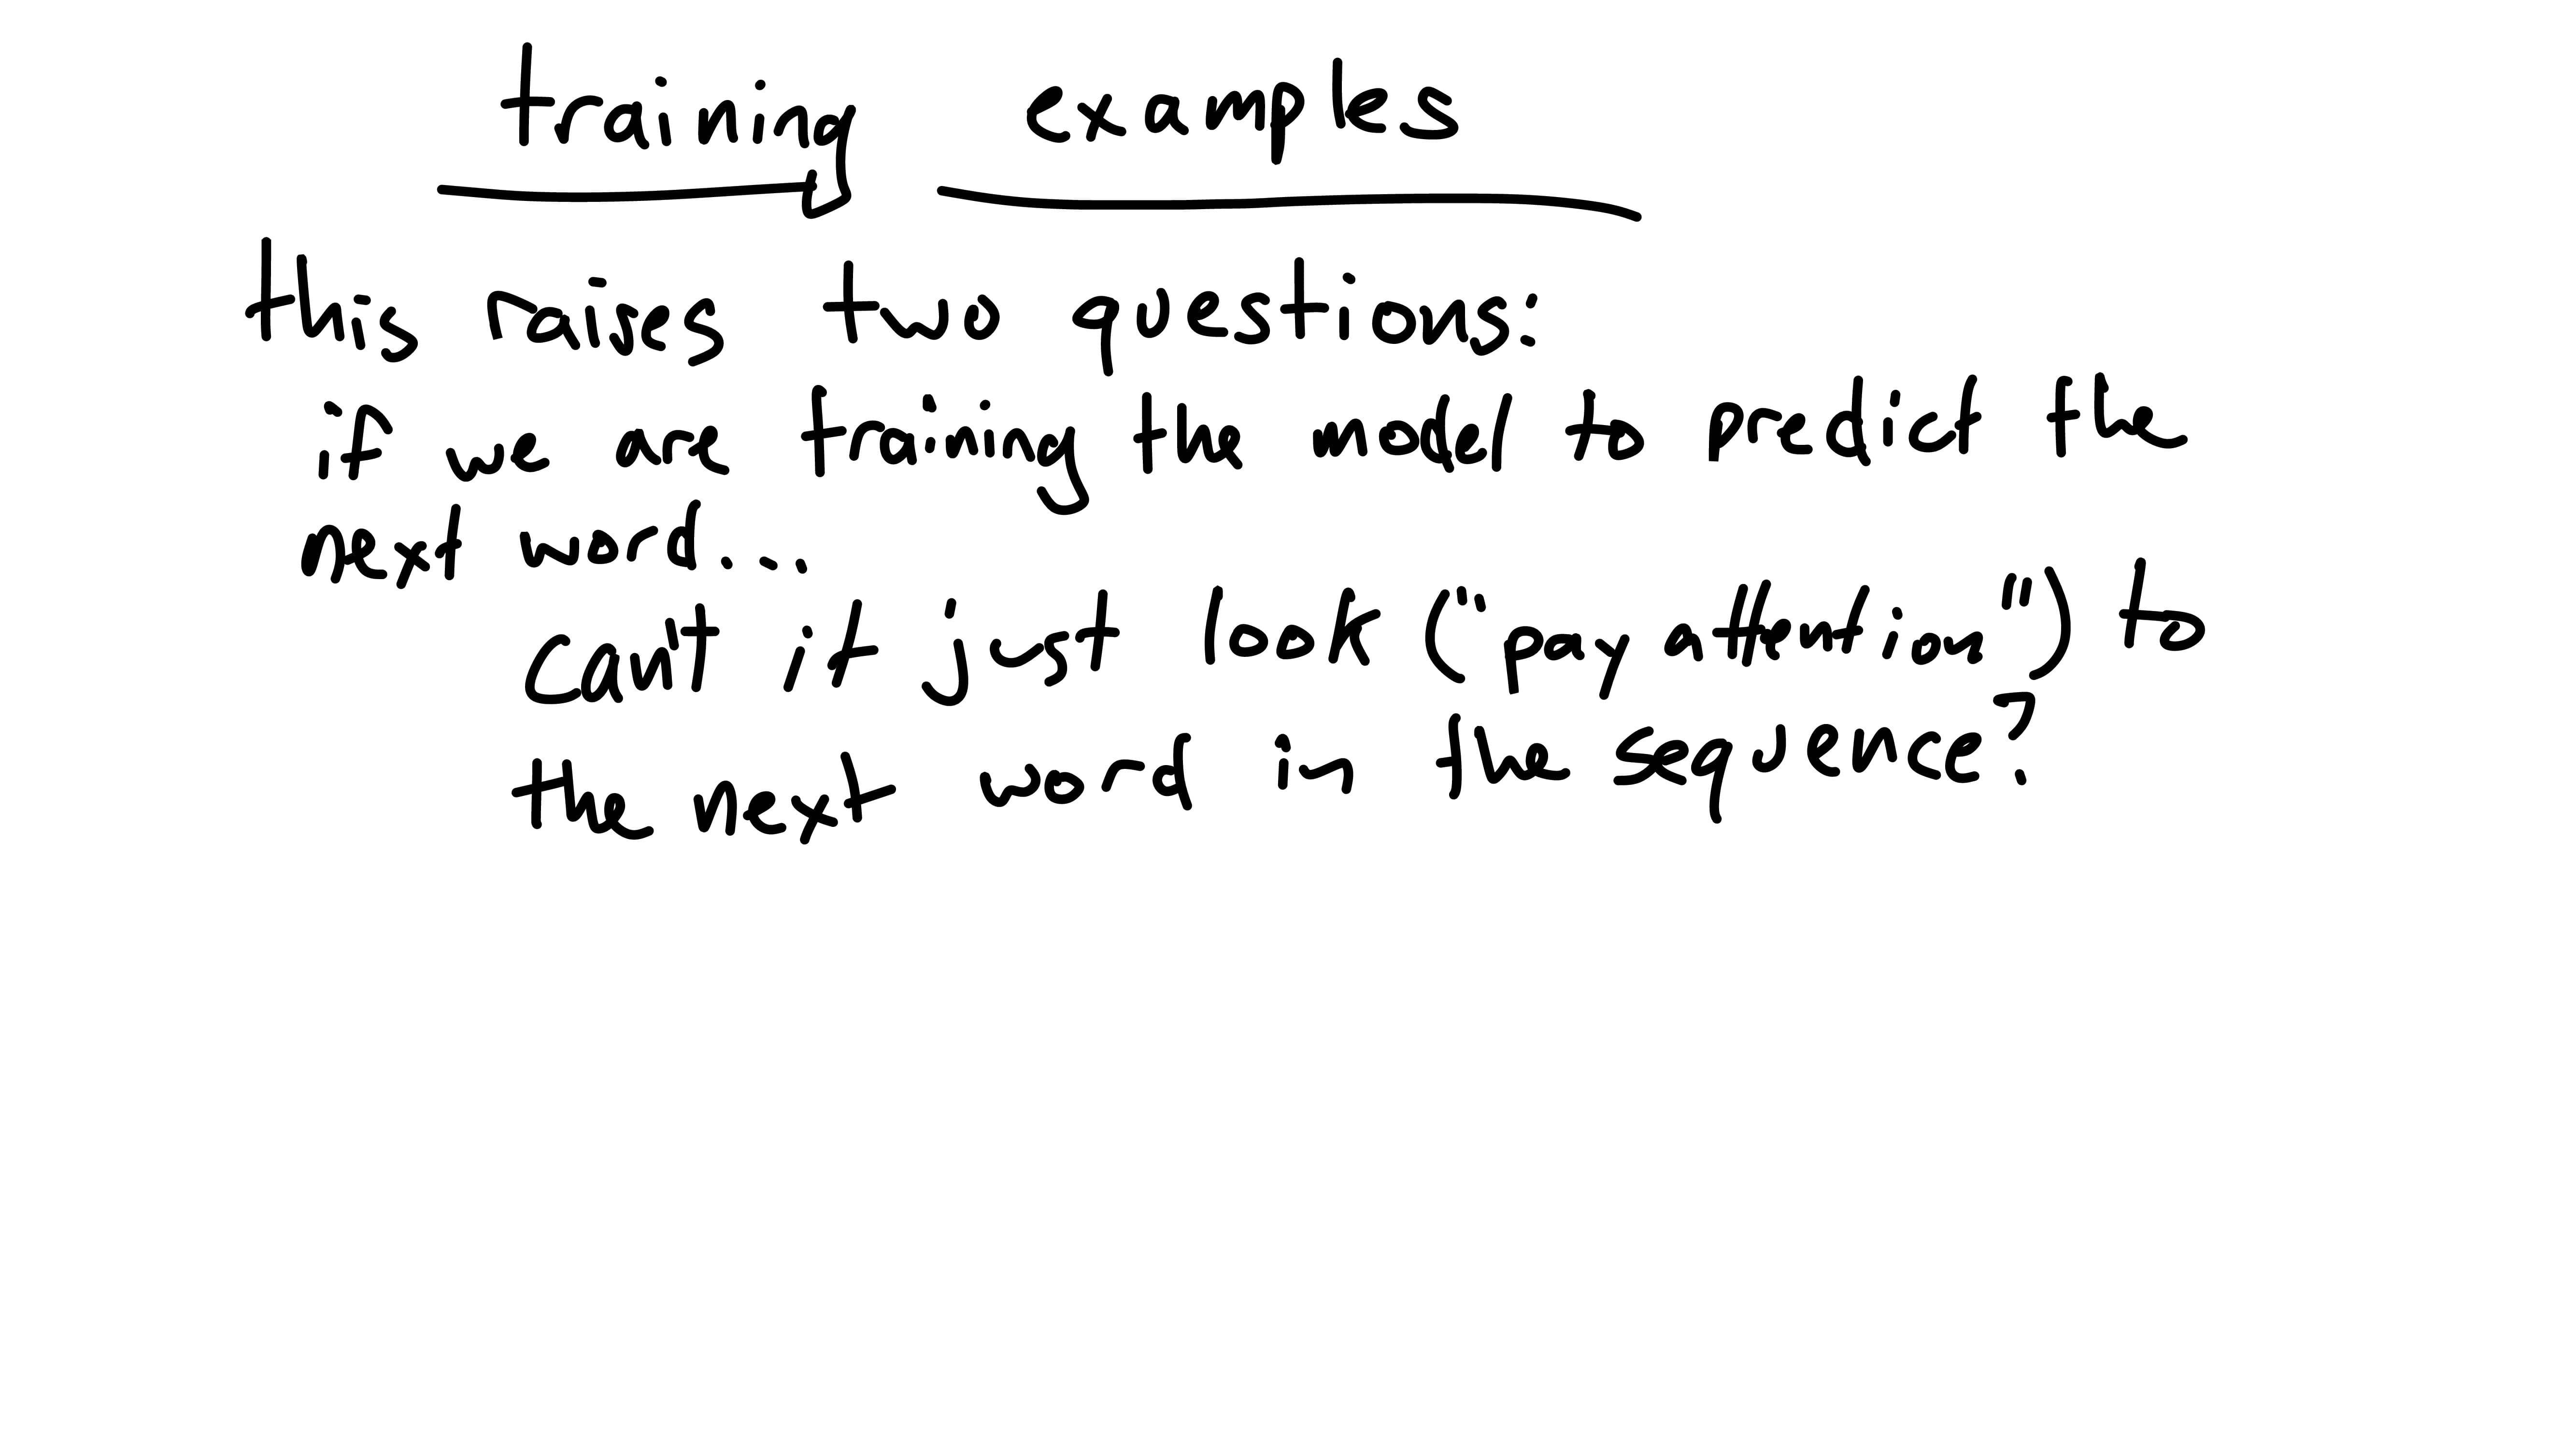 training examples
this raises two questions:
if we are training the model to predict the
next word...
can't it just look ("pay attention") to
the next word in the sequence?